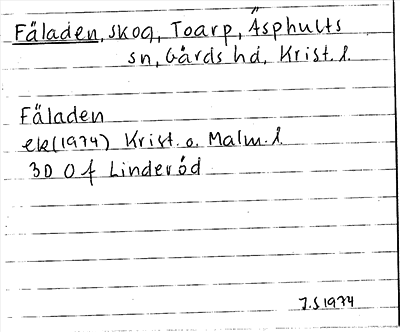 Fäladen, skog, Toarp, Äsphults
sn, Gärds hd, Krist. l.
Fäladen
ek(1974) Krist. o. Malm. l.
3D 0f Linderöd
J.S 1974